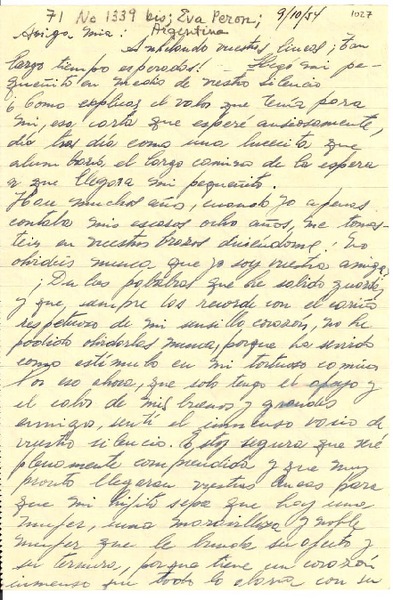 71 No 1339 bis; Eva Peron; 9/10/54 1027
Amiga mia: Argentina
Anhelando vuestras lineas; tan
largo tiempo esperadas! Llegó mi pe-
queñito en medio de vestro silencio
Como explicar el valor que tenía para
mi, esa carta que esperé ansiosamente,
día tras día como una lucecita que
alumbrara el largo camino de la espera
a que llegara mi pequeñito.
Hace muchos años, cuando yo apenas
contaba mis escasos ocho años, me tomas-
teis en vuestros brazos diciendome! No
olvideis nunca que yo soy vuestra amiga,
¡Da las palabras que he sabido guardar
y que, siempre las recordé con el cariño
respetuoso de mi sensillo corazón, no he
podido olvidarlas nunca, porque ha servido
como estímulo en mi tortuoso camino
Por eso ahora, que solo tengo el apoyo y
el calor de mis buenos y grandes
amigos, sentí el inmenso vacio de
vuestro silencio. Estoy segura que seré
plenamente comprendida y que muy
pronto llegaran vuestras lineas para
que mi hijito sepa que hay una
mujer, una maravillosa y noble
mujer que le brinda su afecto y
su ternura, porque tiene un corazón
inmenso que todo lo abarca con su